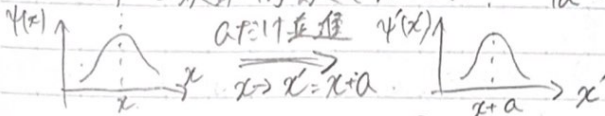 ψ(x)
x
x
aだけ並進
x→x'=x+a
ψ'(x')
x+a
x'